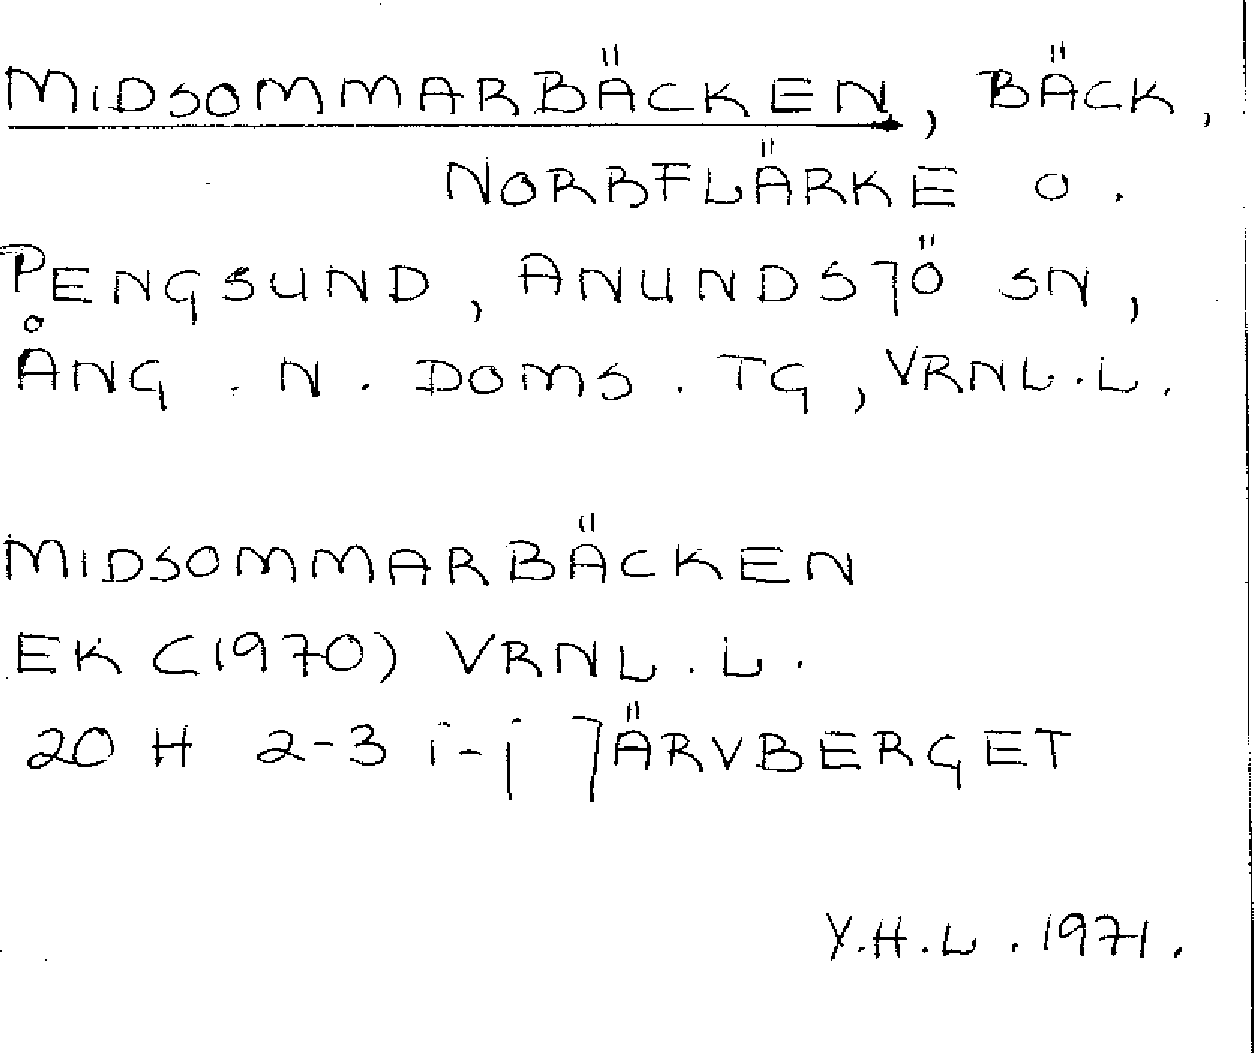 MIDSOMMARBÄCKEN, BÄCK,
NORRFLÄRKE O.
PENGSUND, ANUNDSJÖ SN,
ÅNG. N. DOMS. TG, VRNL.L.
MIDSOMMARBÄCKEN
EK (1970) VRNL.L.
20 H 2-3 i-j JÄRVBERGET
Y.H.L. 1971.